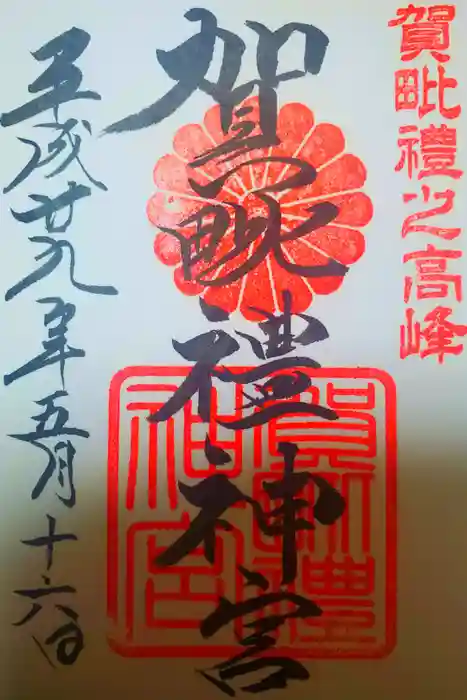 賀毗禮之高峰
賀毗禮神宮
平成廿九年五月十六日
賀毗禮
神宮